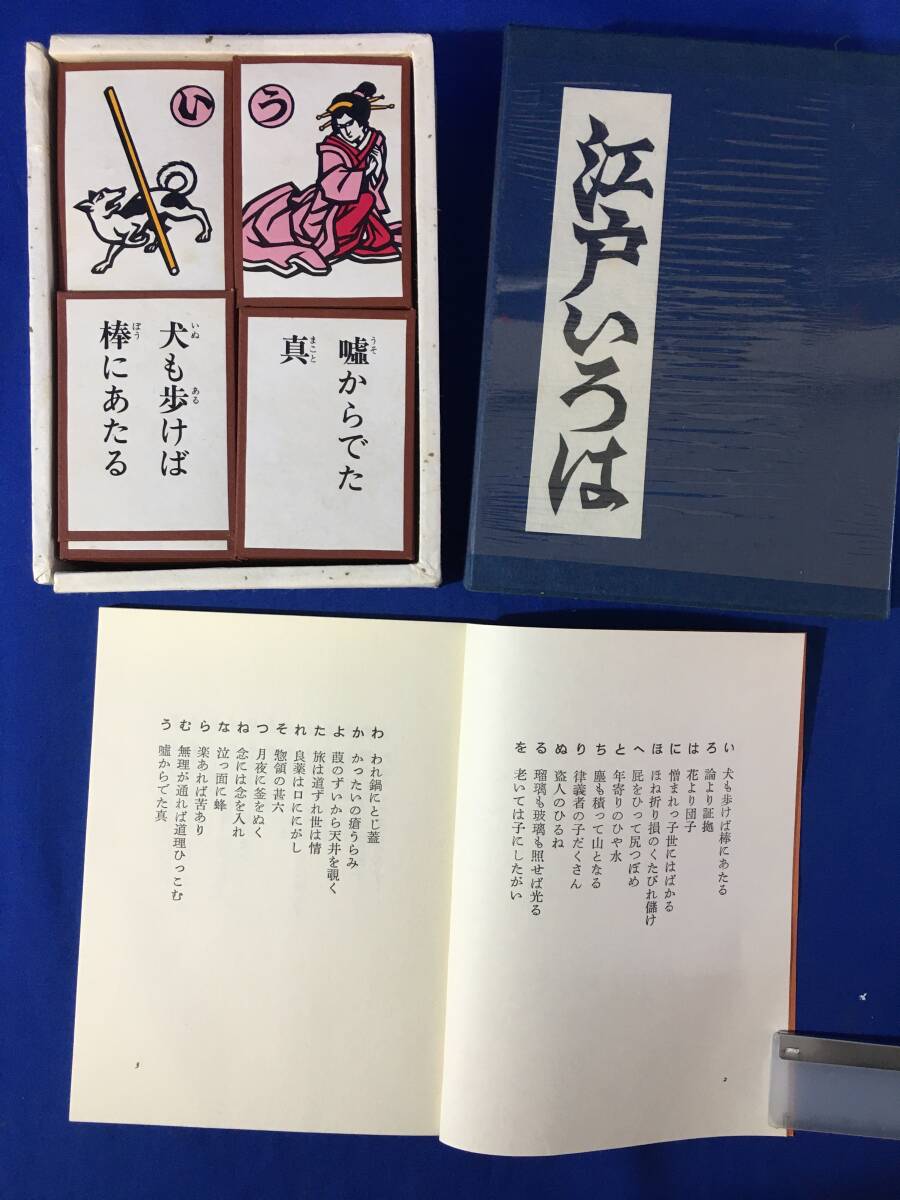 い
う
犬も歩けば
棒にあたる
いぬ
ある
ぼう
嘘からでた
真
うそ
まこと
江戸いろは
い 犬も歩けば棒にあたる
ろ 論より証拠
は 花より団子
に 憎まれっ子世にはばかる
ほ ほね折り損のくたびれ儲け
へ 屁をひって尻つぼめ
と 年寄りのひや水
ち 塵も積って山となる
り 律義者の子だくさん
ぬ 盗人のひるね
る 瑠璃も玻璃も照せば光る
を 老いては子にしたがい
2
わ われ鍋にとじ蓋
か かったいの瘡うらみ
よ 葭のずいから天井を覗く
た 旅は道ずれ世は情
れ 良薬は口ににがし
そ 惣領の甚六
つ 月夜に釜をぬく
ね 念には念を入れ
な 泣っ面に蜂
ら 楽あれば苦あり
む 無理が通れば道理ひっこむ
う 嘘からでた真
3